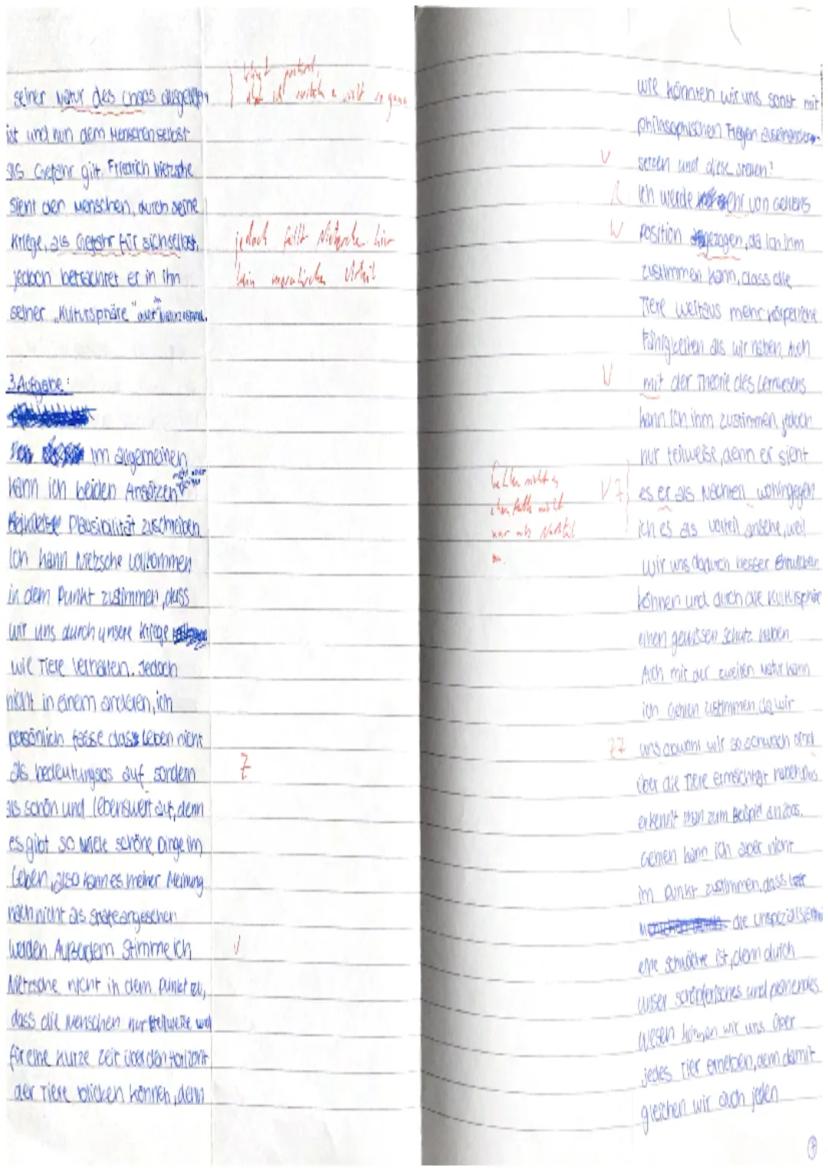 seiner Natur des Chaos ausgeliefert
ist und nun dem Menschen selbst
als Gefahr gilt. Friedrich Nietzsche
sieht den Menschen, durch seine
Kriege, als Gefahr für sich selbst,
jedoch betrachtet er in ihn
seiner „Kultursphäre"
jedoch fällt Nietzsche hier
kein moralisches Urteil
3. Aufgabe:
im allgemeinen
kann ich beiden Ansätzen
Plausibilität zuschreiben
Ich kann Nietzsche vollkommen
in dem Punkt zustimmen, dass
wir uns durch unsere Kriege
wie Tiere verhalten. Jedoch
nicht in einem anderen, ich
persönlich fasse das Leben nicht
als bedeutungslos auf sondern
Z
als schön und lebenswert auf, denn
es gibt so viele schöne Dinge im
Leben, also kann es meiner Meinung
nach nicht als Strafe angesehen
werden. Außerdem stimme ich
Nietzsche nicht in dem Punkt zu,
dass die Menschen nur teilweise und
für eine kurze Zeit über den Horizont
der Tiere blicken können, denn
wie könnten wir uns sonst mit
philosophischen Fragen auseinander-
setzen und diese stellen?
Ich werde von Gehlens
Position da ich ihm
zustimmen kann, dass die
Tiere weitaus mehr körperliche
Fähigkeiten als wir haben. Auch
mit der Theorie des Lernwesens
kann ich ihm zustimmen, jedoch
nur teilweise, denn er sieht
es er als Nachteil, wohingegen
ich es als Vorteil ansehe, weil
Gehlen sieht es
ebenfalls nicht
nur als Nachteil
an.
wir uns dadurch besser entwickeln
können und durch die Kultursphäre
einen gewissen Schutz haben.
Auch mit der zweiten Natur kann
ich Gehlen zustimmen, da wir
uns obwohl wir so schwach sind
über die Tiere ermächtigt haben, das
erkennt man zum Beispiel an Zoos.
Gehlen kann ich aber nicht
im Punkt zustimmen, dass
die
eine Schwäche ist, denn durch
unser schöpferisches und planendes
Wesen können wir uns über
jedes Tier erheben, denn damit
gleichen wir auch jeden